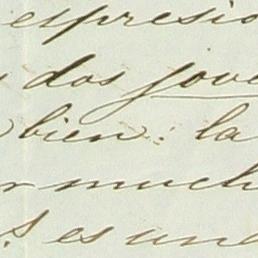 espresio
dos jove
bien: la
r much
es una